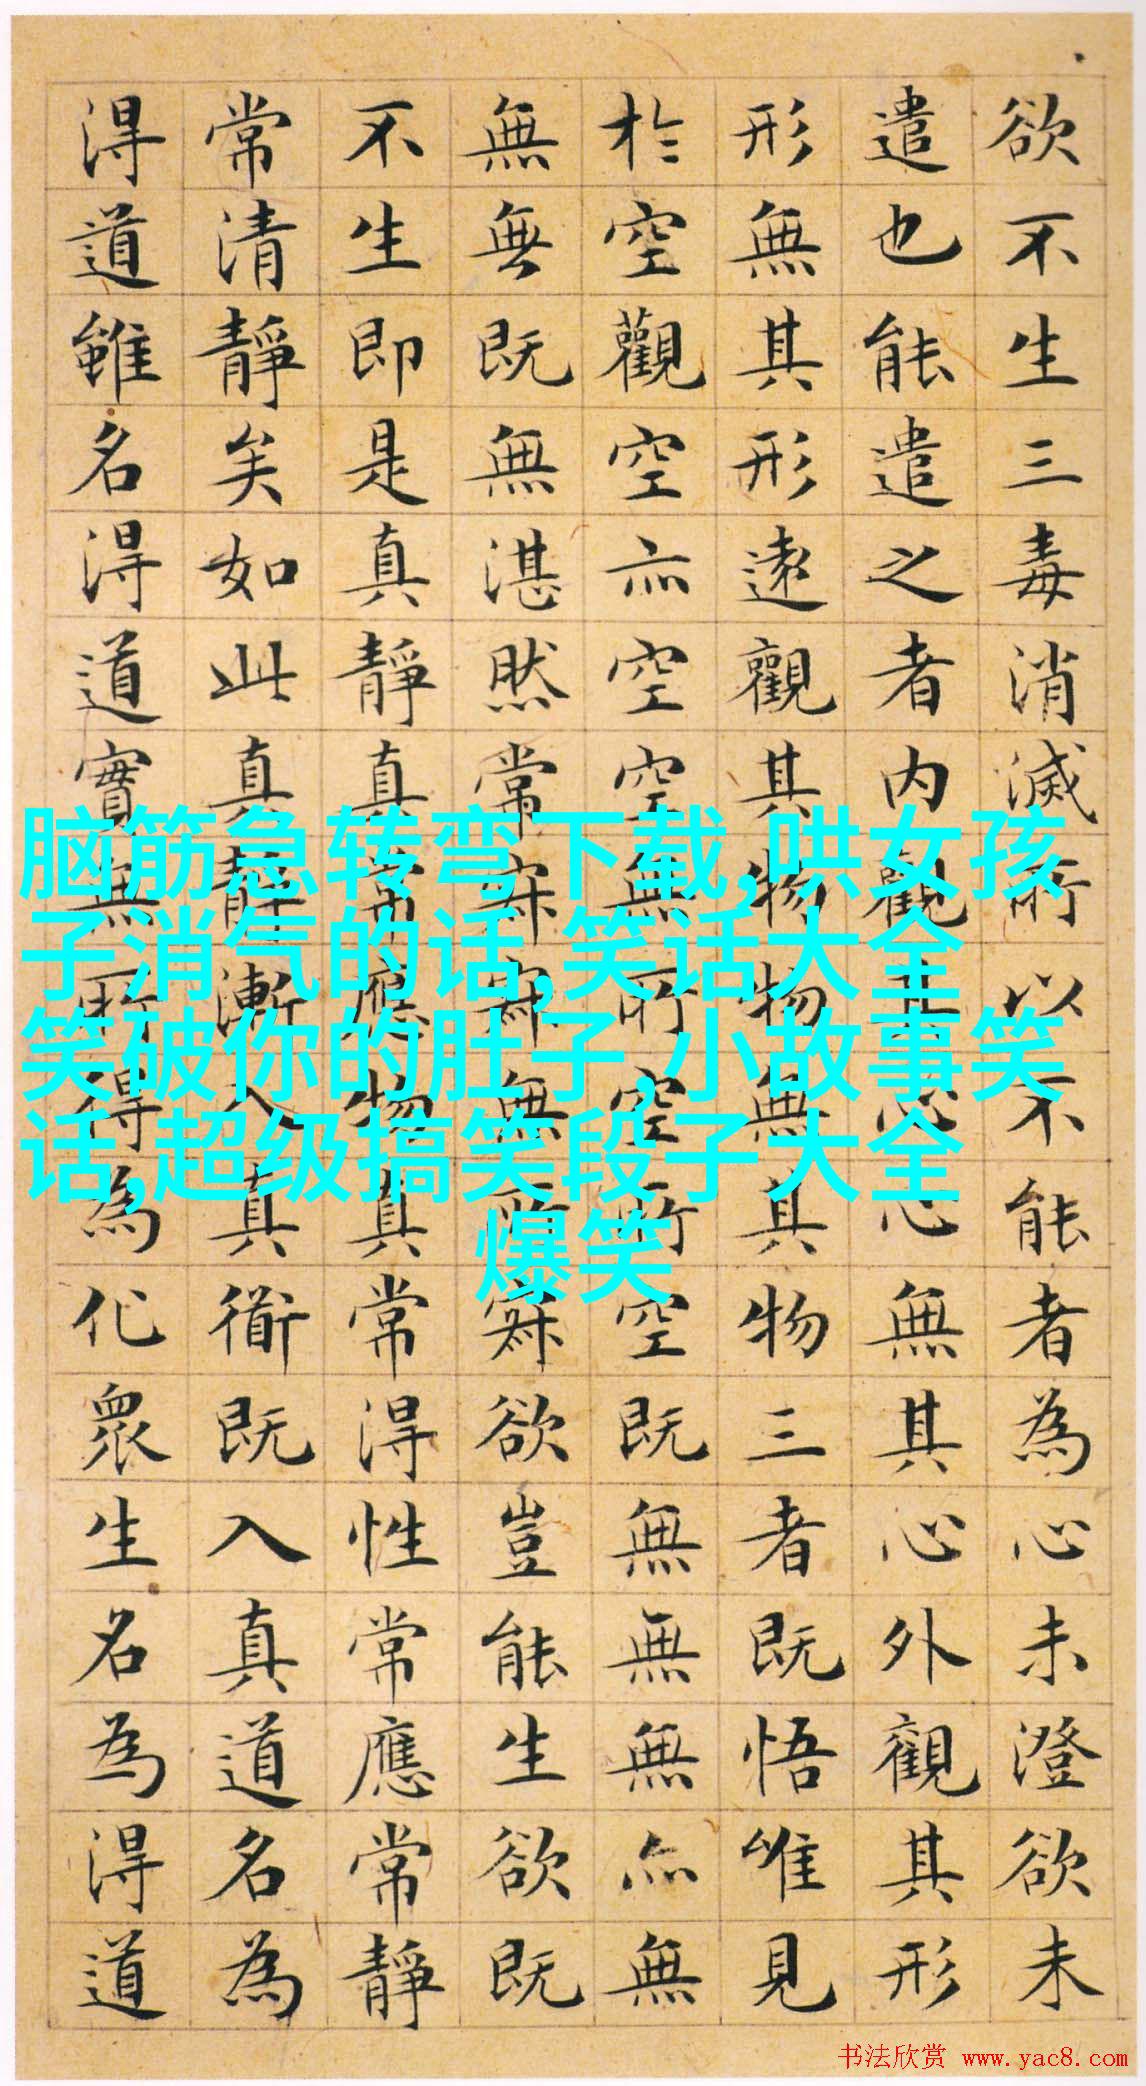 欲不生三毒消滅所以不能者為心未澄欲未
遣也能遣之者内觀其心心無其心外觀其形
形無其形遠觀其物物無其物三者既悟唯見
於空觀空亦空空無所空所空既無無無亦無
無無既無湛然常寂寂無所寂欲豈能生欲既
不生即是真靜真常應物真常得性常應常靜
常清靜矣如此真靜漸入真衜既入真道名為
得道雖名得道實無所得為化眾生名為得道
脑筋急转弯下载,哄女孩
子消气的话,笑话大全
笑破你的肚子,小故事笑
话,超级搞笑段子大全
爆笑
书法欣赏 www.yac8.com